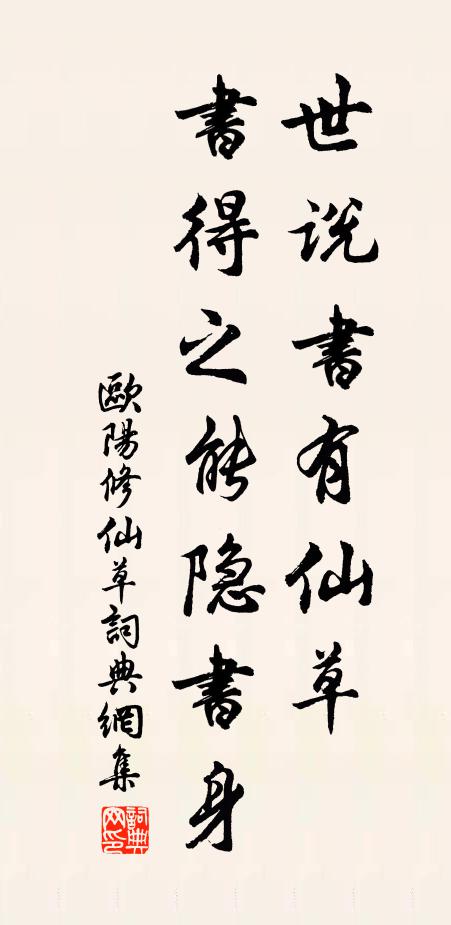 世说書有仙草
書得之能隐書身
歐陽修仙草詞典網集
詞典网印